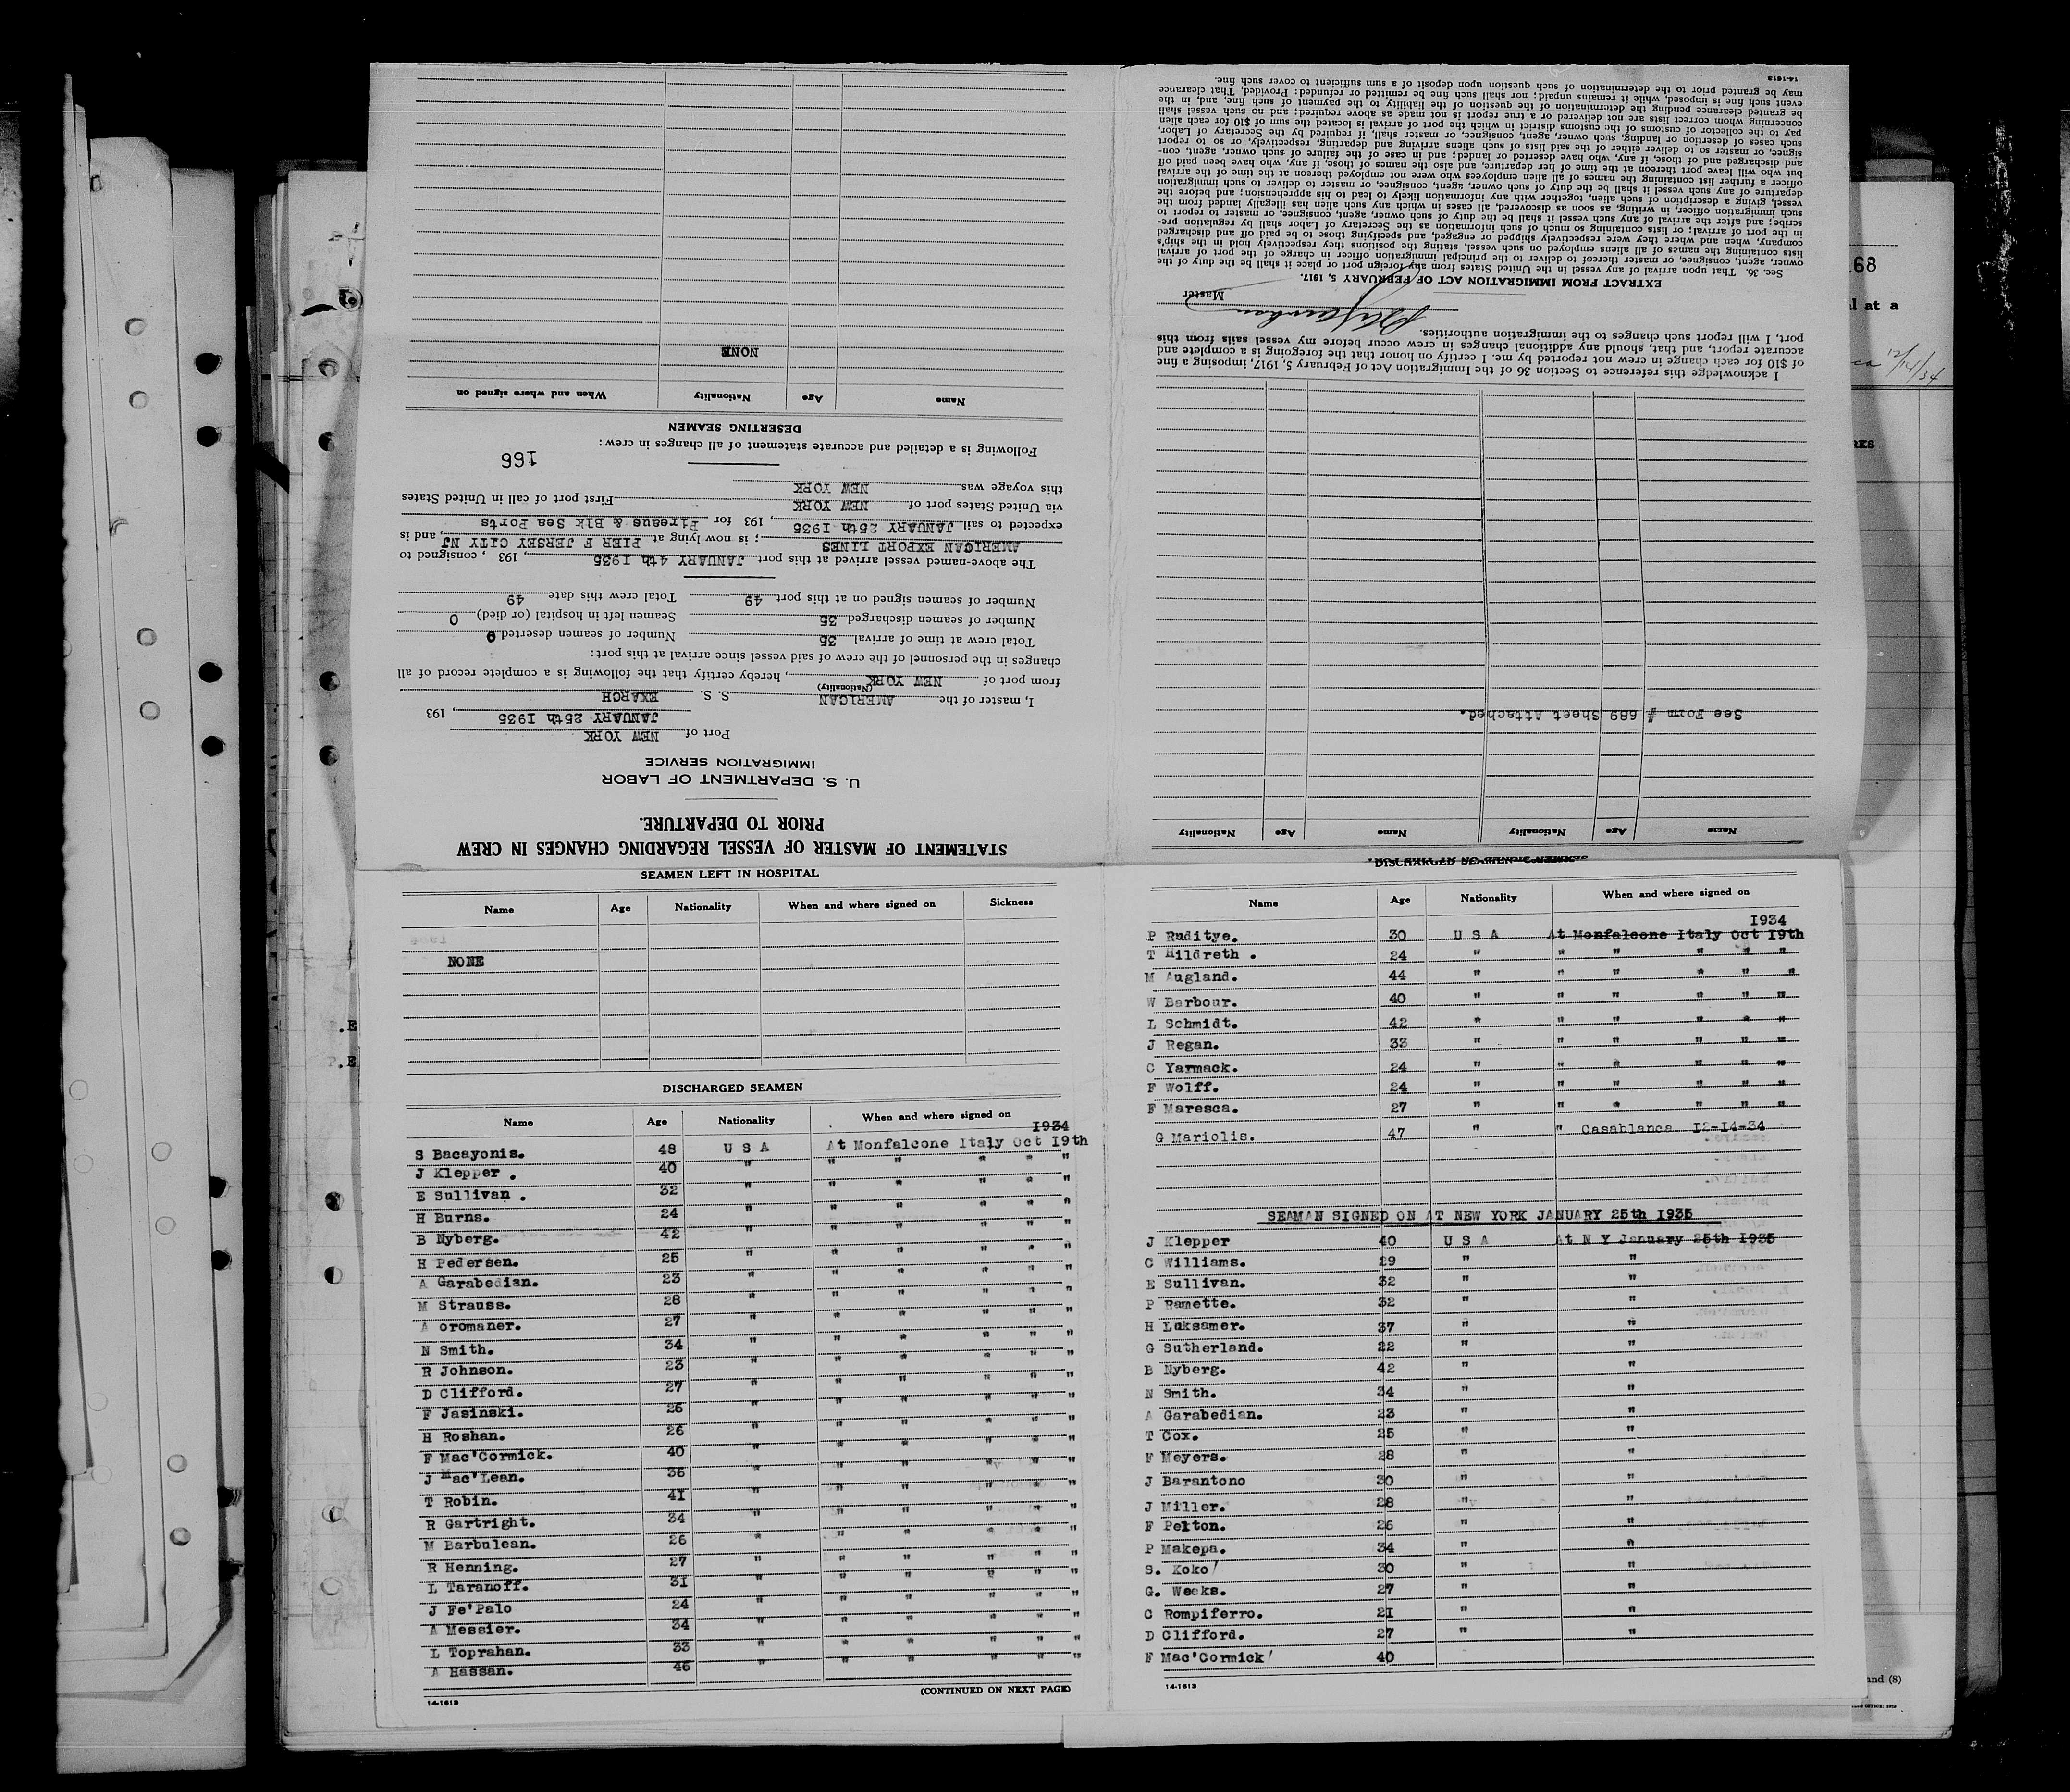 STATEMENT OF MASTER OF VESSEL REGARDING CHANGES IN CREW
PRIOR TO DEPARTURE.
U. S. DEPARTMENT OF LABOR
IMMIGRATION SERVICE
Port of NEW YORK
JANUARY 25th 1935, 193
I, master of the AMERICAN S. S. EXARCH
(Nationality)
from port of NEW YORK, hereby certify that the following is a complete record of all
changes in the personnel of the crew of said vessel since arrival at this port:
Total crew at time of arrival 35 Number of seamen deserted 0
Number of seamen discharged 35 Seamen left in hospital (or died) 0
Number of seamen signed on at this port 49 Total crew this date 49
The above-named vessel arrived at this port JANUARY 4th 1935, 193 , consigned to
AMERICAN EXPORT LINES; is now lying at PIER F JERSEY CITY NJ, and is
expected to sail JANUARY 25th 1935, 193 for Pireaus & Blk Sea Ports
via United States port of NEW YORK First port of call in United States
this voyage was NEW YORK
166
Following is a detailed and accurate statement of all changes in crew:
DESERTING SEAMEN
Name Age Nationality When and where signed on
NONE
SEAMEN LEFT IN HOSPITAL
Name Age Nationality When and where signed on Sickness
NONE
DISCHARGED SEAMEN
Name Age Nationality When and where signed on
1934
S Bacayonis. 48 U S A At Monfalcone Italy Oct 19th
J Klepper . 40 " " " " " "
E Sullivan . 32 " " " " " "
H Burns. 24 " " " " " "
B Nyberg. 42 " " " " " "
H Pedersen. 25 " " " " " "
A Garabedian. 23 " " " " " "
M Strauss. 28 " " " " " "
A oromaner. 27 " " " " " "
N Smith. 34 " " " " " "
R Johnson. 23 " " " " " "
D Clifford. 27 " " " " " "
F Jasinski. 26 " " " " " "
H Roshan. 26 " " " " " "
F Mac'Cormick. 40 " " " " " "
J Mac'Lean. 36 " " " " " "
T Robin. 41 " " " " " "
R Gartright. 34 " " " " " "
M Barbulean. 26 " " " " " "
R Henning. 27 " " " " " "
L Taranoff. 31 " " " " " "
J Fe'Palo 24 " " " " " "
A Messier. 34 " " " " " "
L Toprahan. 33 " " " " " "
A Hassan. 46 " " " " " "
14-1613 (CONTINUED ON NEXT PAGE)
DISCHARGED SEAMEN
Name Age Nationality When and where signed on
1934
P Ruditye. 30 U S A At Monfalcone Italy Oct 19th
T Hildreth . 24 " " " " " "
M Augland. 44 " " " " " "
W Barbour. 40 " " " " " "
L Schmidt. 42 " " " " " "
J Regan. 33 " " " " " "
C Yarmack. 24 " " " " " "
F Wolff. 24 " " " " " "
F Maresca. 27 " " " " " "
G Mariolis. 47 " " Casablanca 12-14-34
SEAMAN SIGNED ON AT NEW YORK JANUARY 25th 1935
J Klepper 40 U S A At N Y January 25th 1935
C Williams. 29 " "
E Sullivan. 32 " "
P Ramette. 32 " "
H Luksamer. 37 " "
G Sutherland. 22 " "
B Nyberg. 42 " "
N Smith. 34 " "
A Garabedian. 23 " "
T Cox. 25 " "
F Meyers. 28 " "
J Barantono 30 " "
J Miller. 28 " "
F Pelton. 26 " "
P Makepa. 34 " "
S. Koko 30 " "
G. Weeks. 27 " "
C Rompiferro. 21 " "
D Clifford. 27 " "
F Mac'Cormick 40
14-1613
Name Age Nationality Name Age Nationality
See Form # 689 Sheet Attached.
I acknowledge this reference to Section 36 of the Immigration Act of February 5, 1917, imposing a fine
of $10 for each change in crew not reported by me. I certify on honor that the foregoing is a complete and
accurate report, and that, should any additional changes in crew occur before my vessel sails from this
port, I will report such changes to the immigration authorities.
Master
EXTRACT FROM IMMIGRATION ACT OF FEBRUARY 5, 1917.
Sec. 36. That upon arrival of any vessel in the United States from any foreign port or place it shall be the duty of the
owner, agent, consignee, or master thereof to deliver to the principal immigration officer in charge of the port of arrival
lists containing the names of all aliens employed on such vessel, stating the positions they respectively hold in the ship's
company, when and where they were respectively shipped or engaged, and specifying those to be paid off and discharged
in the port of arrival; or lists containing so much of such information as the Secretary of Labor shall by regulation pre-
scribe; and after the arrival of any such vessel it shall be the duty of such owner, agent, consignee, or master to report to
such immigration officer, in writing, as soon as discovered, all cases in which any such alien has illegally landed from the
vessel, giving a description of such alien, together with any information likely to lead to his apprehension; and before the
departure of any such vessel it shall be the duty of such owner, agent, consignee, or master to deliver to such immigration
officer a further list containing the names of all alien employees who were not employed thereon at the time of the arrival
but who will leave port thereon at the time of her departure, and also the names of those, if any, who have been paid off
and discharged and of those, if any, who have deserted or landed; and in case of the failure of such owner, agent, con-
signee, or master so to deliver either of the said lists of such aliens arriving and departing, respectively, or so to report
such cases of desertion or landing, such owner, agent, consignee, or master, shall, if required by the Secretary of Labor,
pay to the collector of customs of the customs district in which the port of arrival is located the sum of $10 for each alien
concerning whom correct lists are not delivered or a true report is not made as above required; and no such vessel shall
be granted clearance pending the determination of the question of the liability to the payment of such fine, and, in the
event such fine is imposed, while it remains unpaid; nor shall such fine be remitted or refunded: Provided, That clearance
may be granted prior to the determination of such question upon deposit of a sum sufficient to cover such fine.
14-1613
168
l at a
12/14/34
RKS
and (8)
.E
P.E